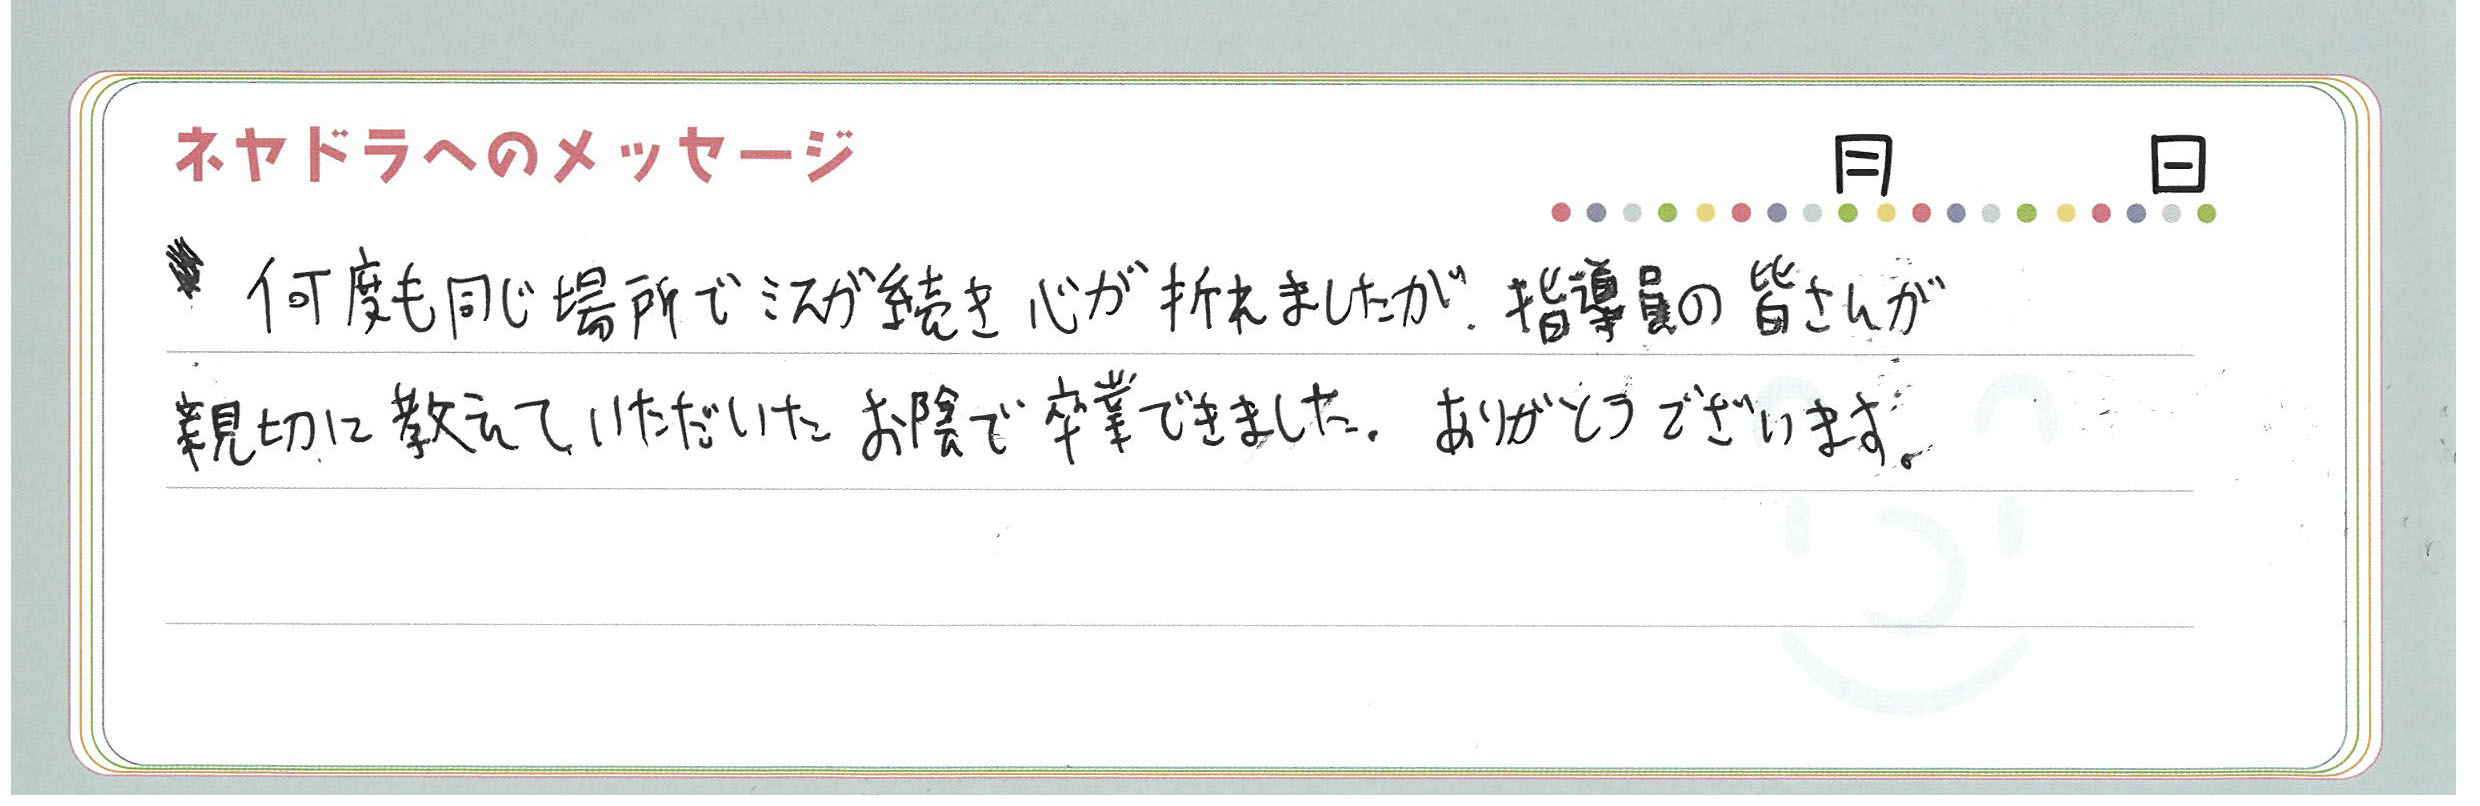 ネヤドラへのメッセージ
月 日
何度も同じ場所でミスが続き心が折れましたが、指導員の皆さんが
親切に教えていただいたお陰で卒業できました。ありがとうございます。